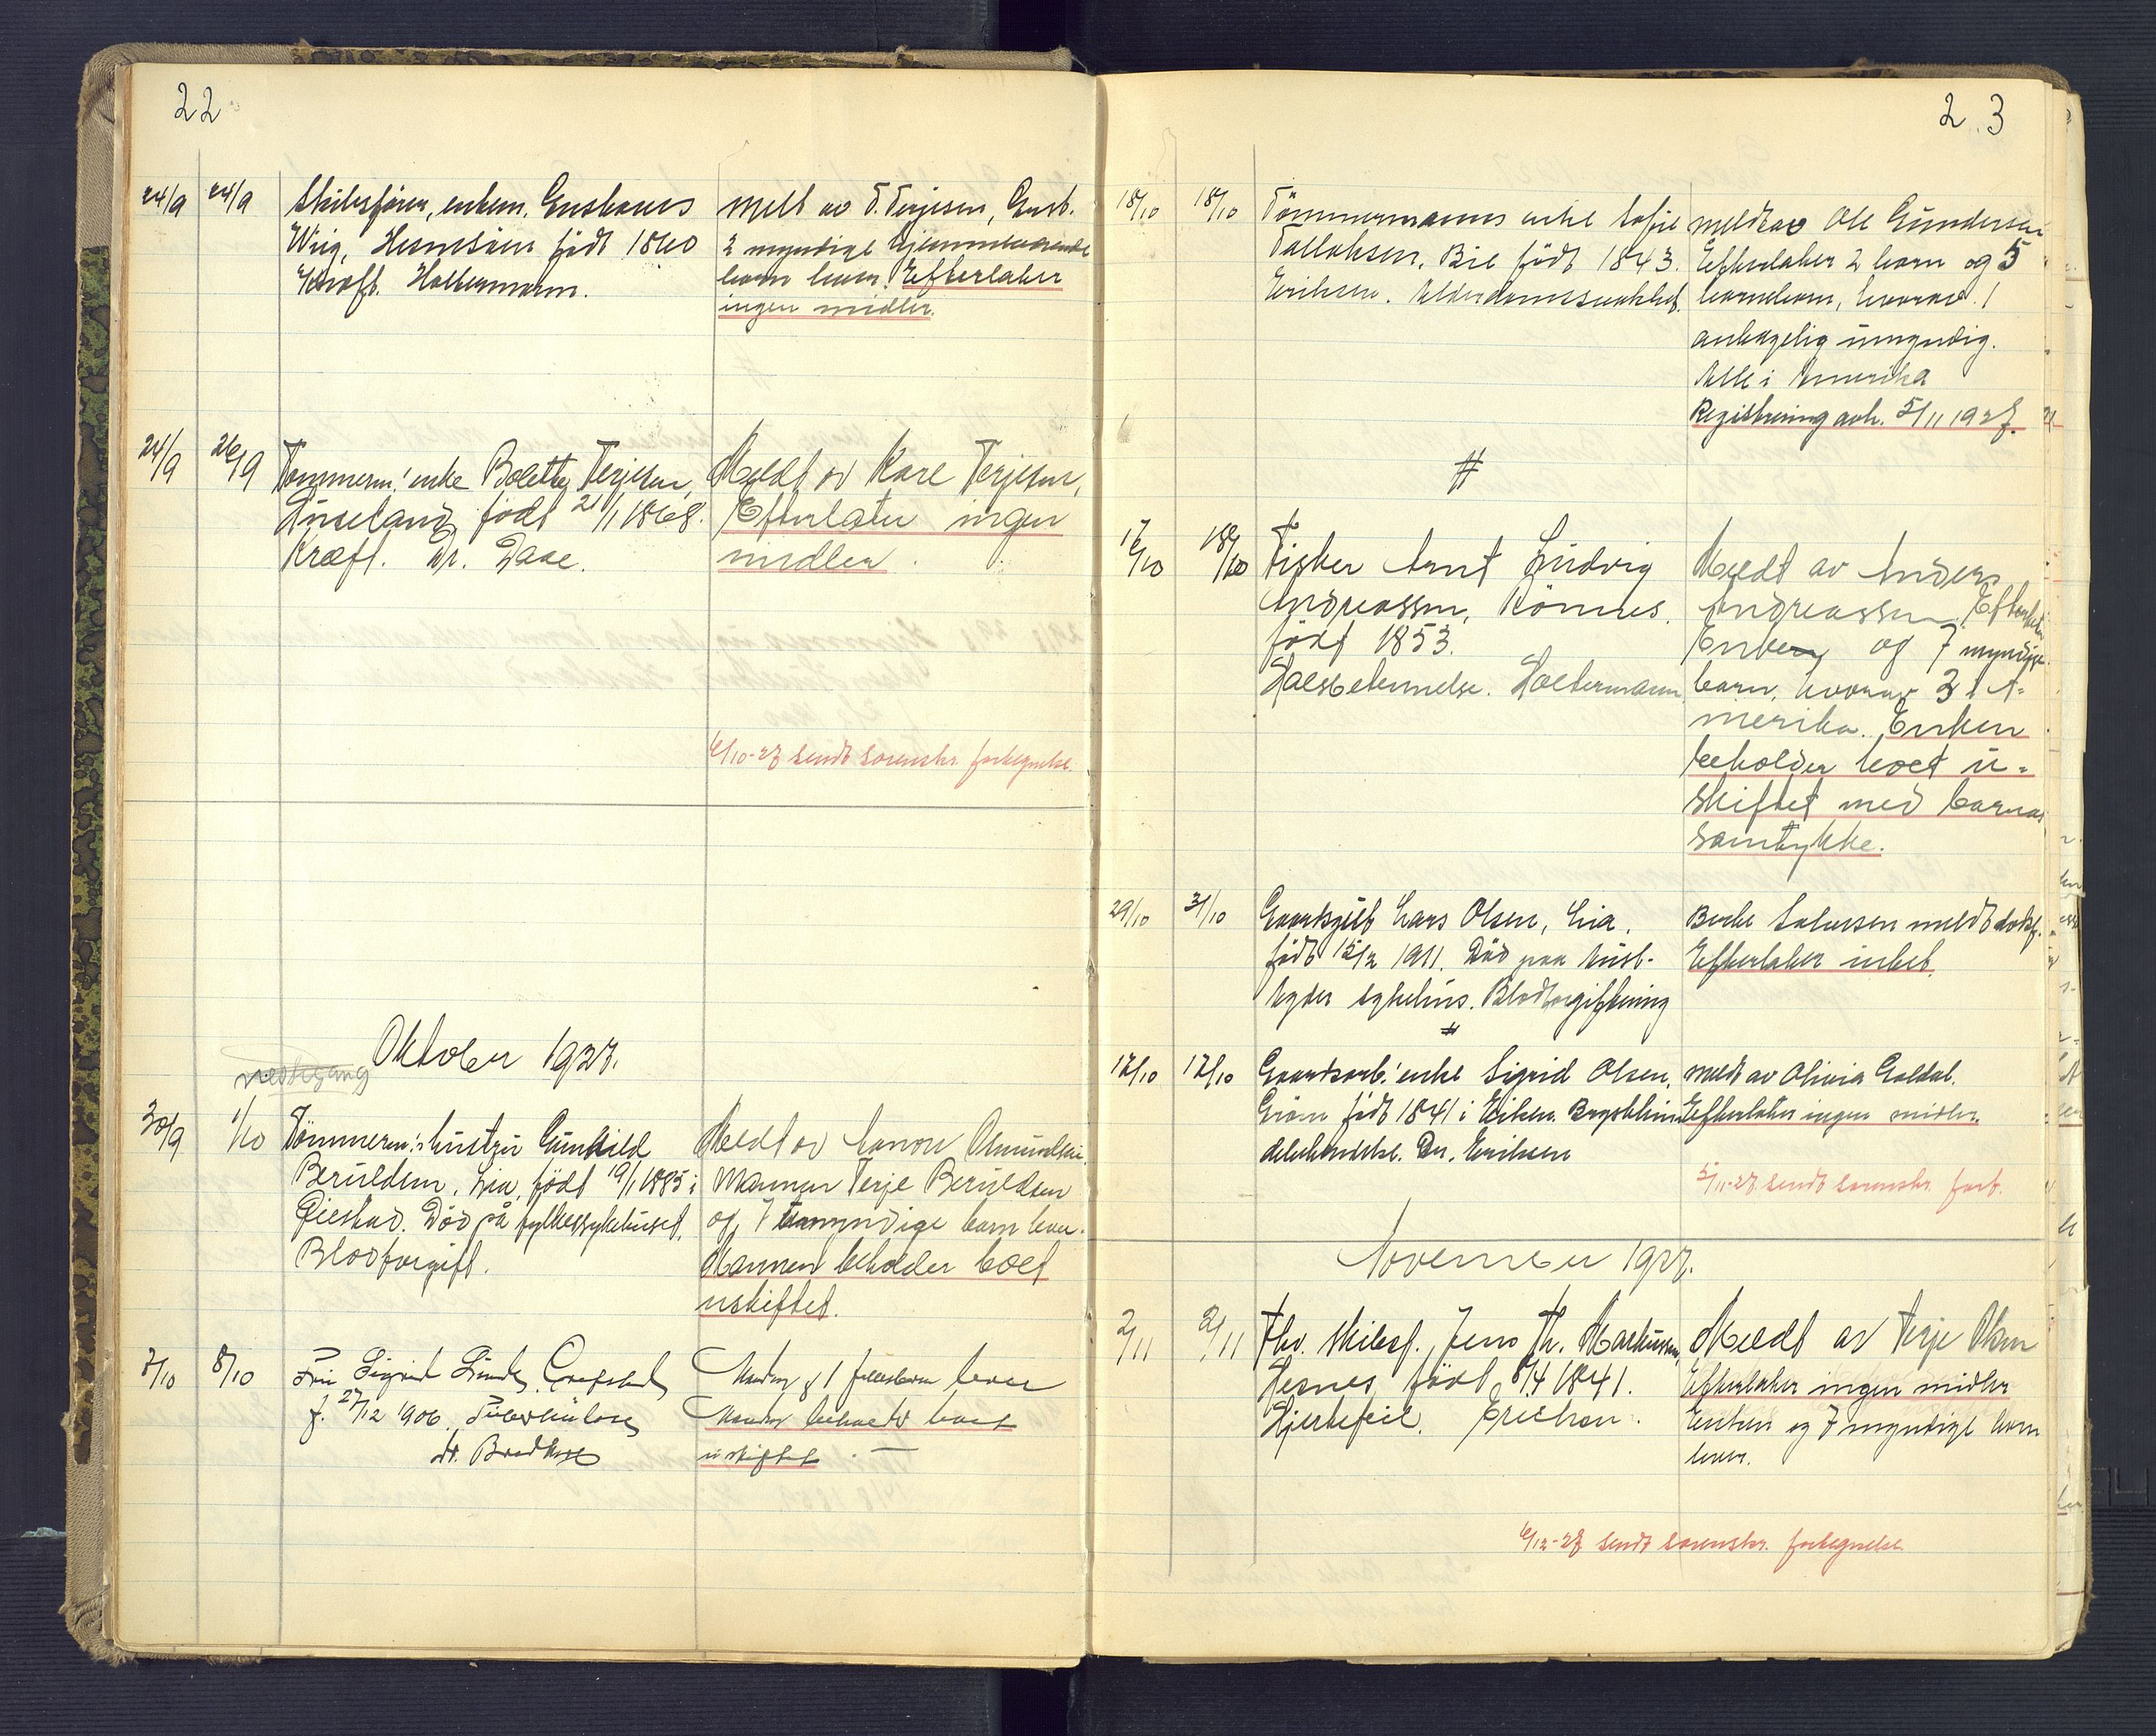 22
24/9 24/9 Skibsfører, enkem. Gustaves meldt av T. Terjesen, Grefst.
Wiig, Hesnesøen født 1840 2 myndige hjemmeværende
Kræft. Holtermann. barn lever. Efterlater
ingen midler.
24/9 26/9 Tømmerm.' enke Bolette Terjesen, Meldt av Kare Terjesen,
født 21/1 1868. Efterlater ingen
Kræft. Dr. Daae. midler.
6/10-27 sendt sorenskr. fortegnelse.
Oktober 1927.
30/9 1/10 Tømmerm.'s hustru Gunhild Meldt av Omundsen.
Beruldsen, Lia, født 19/1 1885 i Mannen Terje Beruldsen
Gjerstad. Død på fylkessykehuset. og 7 umyndige barn lever.
Blodforgift. Mannen beholder boet
uskiftet.
7/10 8/10 Fru Sigrid Lund, Grefstad, Manden & 1 fellesbarn lever
f. 27/12 1906. Tuberkulose Manden beholder boet
dr. uskiftet. —
23
18/10 18/10 Tømmermanns enke Sofie meldt av Ole Gundersen
Tallaksen, Bie født 1843. Efterlater 2 barn og 5
Eriksen. Alderdomssvakhet. barnebarn, hvorav 1
antagelig umyndig.
Alle i Amerika
Registrering avh. 5/11 1927.
#
17/10 18/10 Fisker Arnt Ludvig Meldt av Anders
Andreassen, Rønnes. Andreassen. Efterlater
født 1853. Enke og 7 myndige
Halsbetennelse. Holtermann. barn, hvorav 3 i A-
merika. Enken
beholder boet u-
skiftet med barnas
samtykke.
29/10 31/10 Gaardsgut Lars Olsen, Lia. meldt dødsf.
født 15/2 1911. Død paa Aust-
Efterlater intet.
Agder sykehus. Blodforgiftning
#
17/10 17/10 Gaardsarb.' enke Sigrid Olsen, meldt av Olivia Goldal.
født 1841 i Eiken. Efterlater ingen midler.
Dr. Eriksen
5/11-27. sendt sorenskr. fort.
November 1927.
2/11 2/11 Fhv. skibsf. Jens Th. Markussen, Meldt av Terje Olsen
Hesnes, født 8/4 1841. Efterlater ingen midler
Hjertefeil. Erichsen. Enken og 7 myndige barn
lever.
6/12-27 sendt sorenskr. fortegnelse.